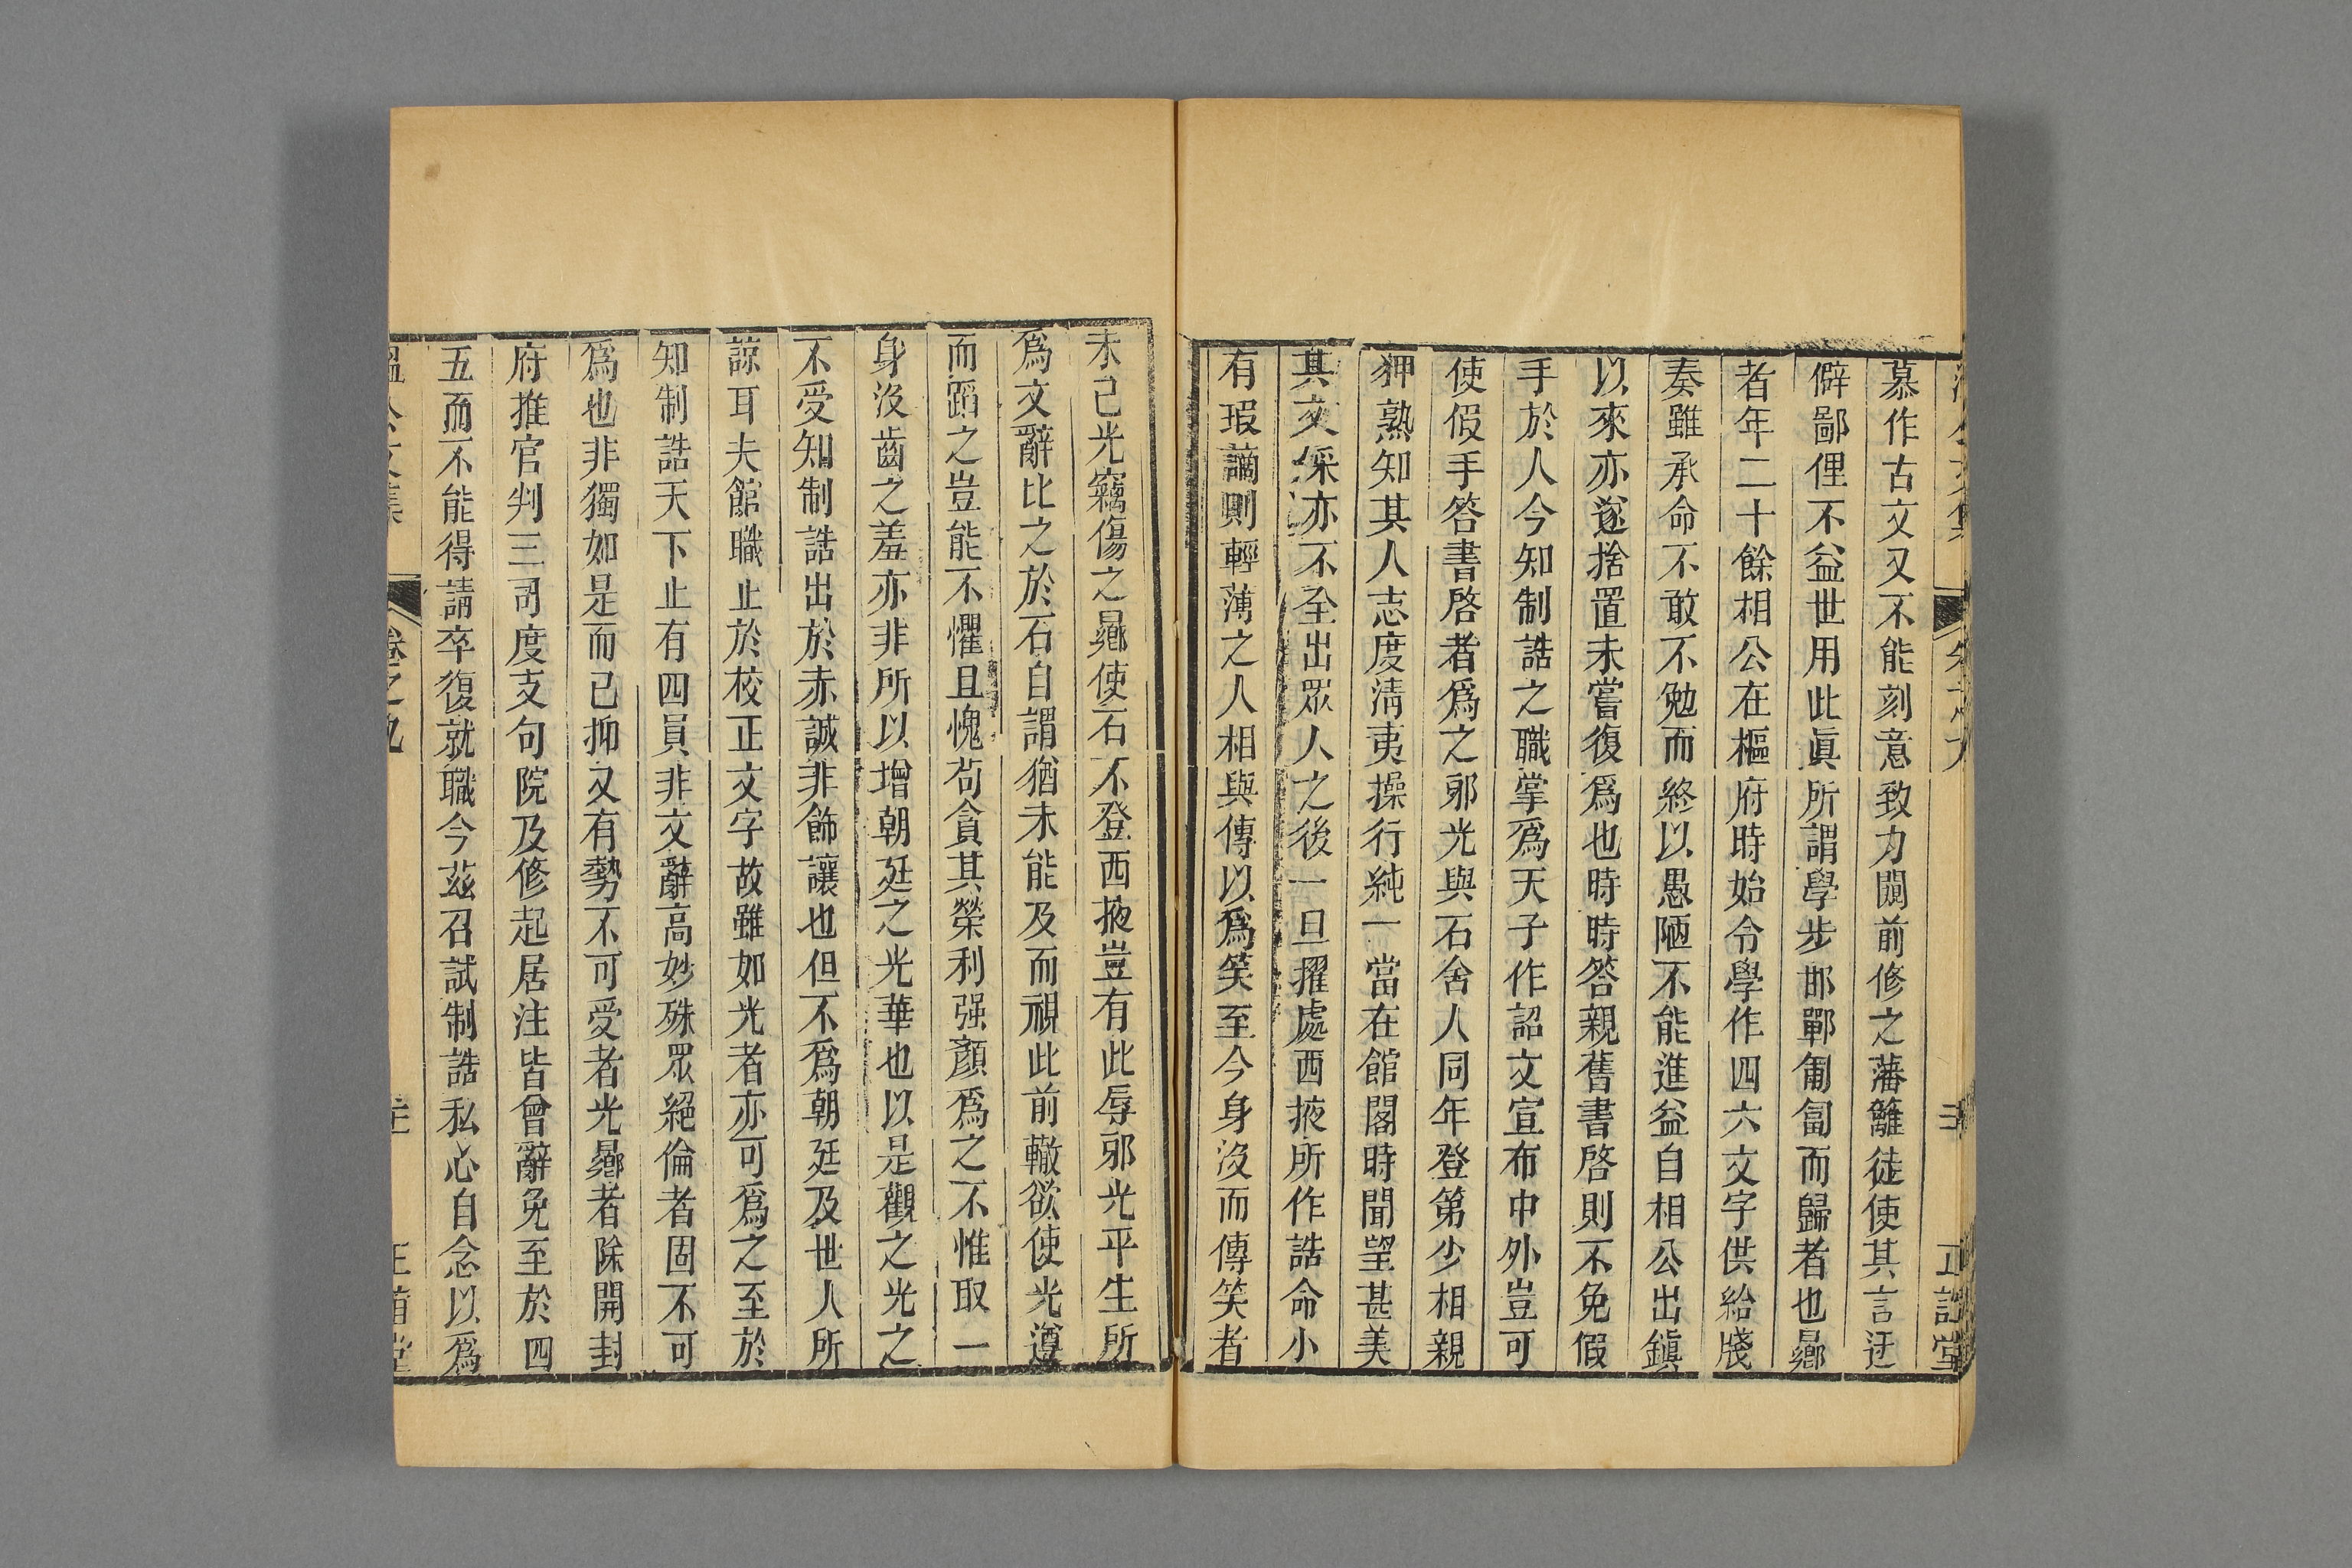 慕作古文又不能刻意致力闚前修之藩籬徒使其言迂
僻鄙俚不益世用此眞所謂學步邯鄲匍匐而歸者也曏
者年二十餘相公在樞府時始令學作四六文字供給牋
奏雖承命不敢不勉而終以愚陋不能進益自相公出鎭
以來亦遂捨置未嘗復爲也時時答親舊書啓則不免假
手於人今知制誥之職掌爲天子作詔文宣布中外豈可
使假手答書啓者爲之邪光與石舍人同年登第少相親
狎熟知其人志度淸夷操行純一當在館閣時聞望甚美
其文採亦不全出眾人之後一旦擢處西掖所作誥命小
有瑕讁則輕薄之人相與傳以爲笑至今身沒而傳笑者
未已光竊傷之曏使石不登西掖豈有此辱邪光平生所
爲文辭比之於石自謂猶未能及而視此前轍欲使光遵
而蹈之豈能不懼且愧苟貪其榮利强顏爲之不惟取一
身沒齒之羞亦非所以增朝廷之光華也以是觀之光之
不受知制誥出於赤誠非飾讓也但不爲朝廷及世人所
諒耳夫館職止於校正文字故雖如光者亦可爲之至於
知制誥天下止有四員非文辭高妙殊眾絕倫者固不可
爲也非獨如是而已抑又有勢不可受者光曏者除開封
府推官判三司度支句院及修起居注皆曾辭免至於四
五而不能得請卒復就職今茲召試制誥私心自念以爲
溫公文集 卷之九